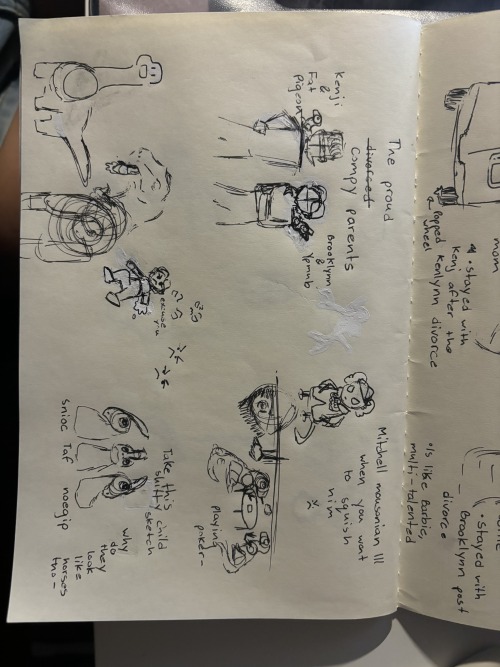 The proud
divorced
compy parents
Kenji
&
Fat
pigeon
Brooklynn
&
excuse
you
Mitchell mousanian III
when you want
to squish
him
playing
poker-
Take this
shitty child
sketch
snioc Taf noegip
why
do
they
look
like
horses
tho-
mom
•stayed with
Kenj after the
Kenlynn divorce
Popped
wheel
•Is like Barbie,
multi-talented
•stayed with
Brooklynn post
divorce